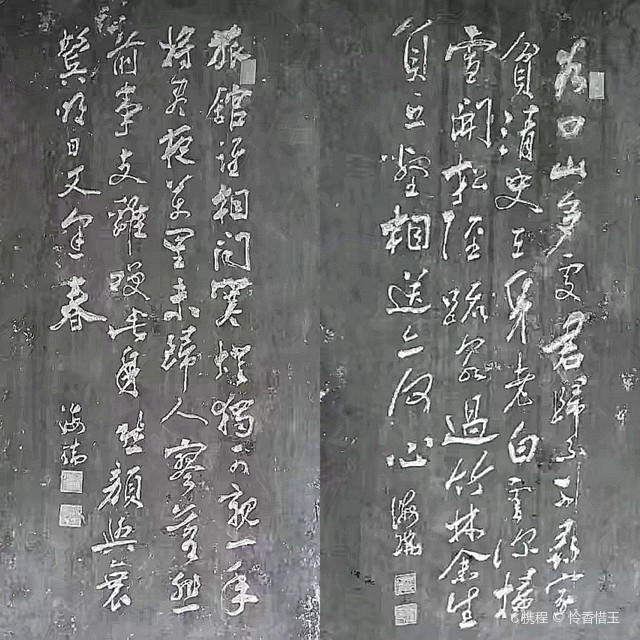 谷口山多處君歸不可尋家
貧清史在身老白雲深掃
雪開松徑疏泉過竹林余生
負丘壑相送亦何心
海瑞
旅館誰相問寒燈獨可親一年
將盡夜萬里未歸人寥落悲
前事支離笑此身愁顏與衰
鬢明日又逢春
海瑞
携程 © 怜香惜玉